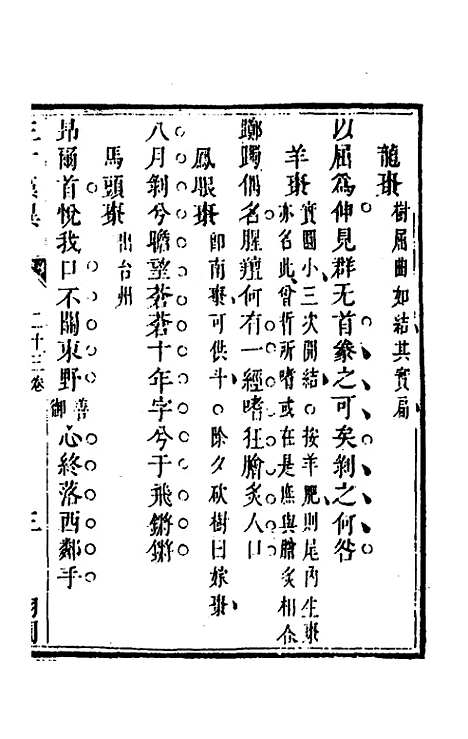 龍棗樹屈曲如結其實扁
以屈爲伸見群无首象之可矣剥之何咎
羊棗實圓小三次開結按羊肥則尾內生棗
亦名此曾晳所嗜或在是庶與膾炙相合
躑躅偶名腥羶何有一經嗜狂膾炙人口
鳳眼棗卽南棗可供斗除夕砍樹曰嫁棗
八月剝兮瞻望蒼蒼十年字兮于飛鏘鏘
馬頭棗出台州
昻爾首悅我口不關東野善御心終落西鄰手
二十三卷 三